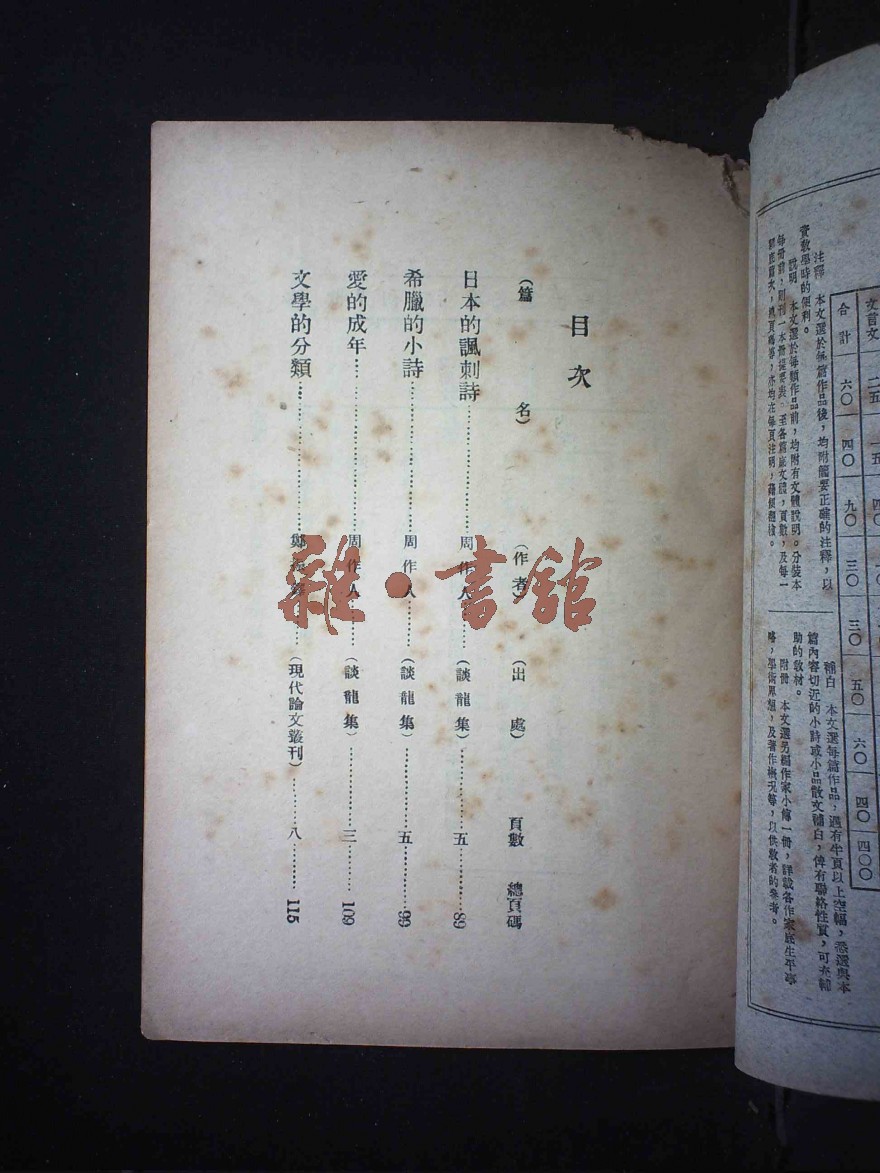 合計 六〇 四〇 九〇 三〇 三〇 五〇 六〇 四〇 四〇〇
注釋　本文選於每篇作品後，均附簡要正確的注釋，以
資教學時的便利。
說明　本文選於每類作品前，均附有文體說明。分裝本
補白　本文選每篇作品，遇有半頁以上空幅，悉選與本
篇內容切近的小詩或小品散文補白，俾有聯絡性質，可充輔
助的教材。
附冊　本文選另編作家小傳一冊，詳載各作家底生平事
略，學術思想，及著作概況等，以供教者的參考。
目次
（篇名）（作者）（出處）頁數 總頁碼
日本的諷刺詩……周作人……（談龍集）……五……89
希臘的小詩……周作人……（談龍集）……五……99
愛的成年……周作人……（談龍集）……三……109
文學的分類……（現代論文叢刊）……八……115
雜·書館